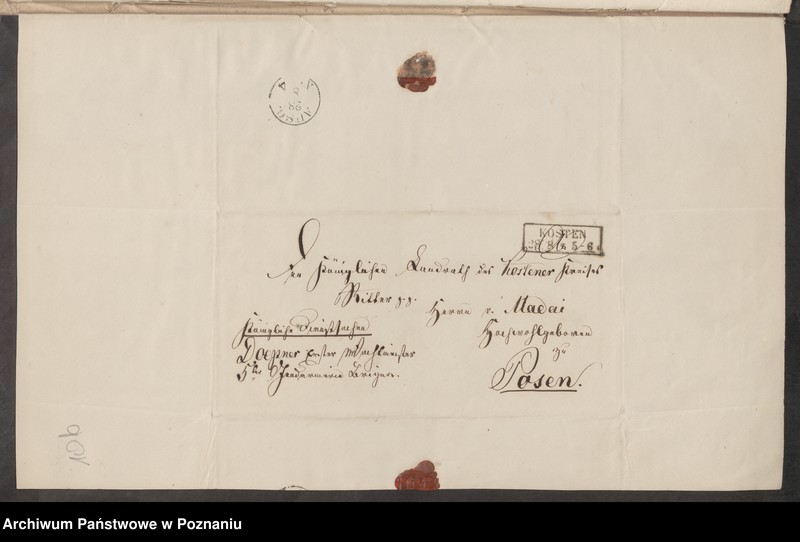 AUSG.
KOSTEN
28 5 5-6
Den Königlichen Landrath des Kostener Kreises
Ritter p. p. Herrn v. Madai
Hochwohlgeboren
Königliche Dienstsachen
zu
Doepner Erster Wachtmeister
5te Gendarmerie Brigade.
Posen.
106
Archiwum Państwowe w Poznaniu